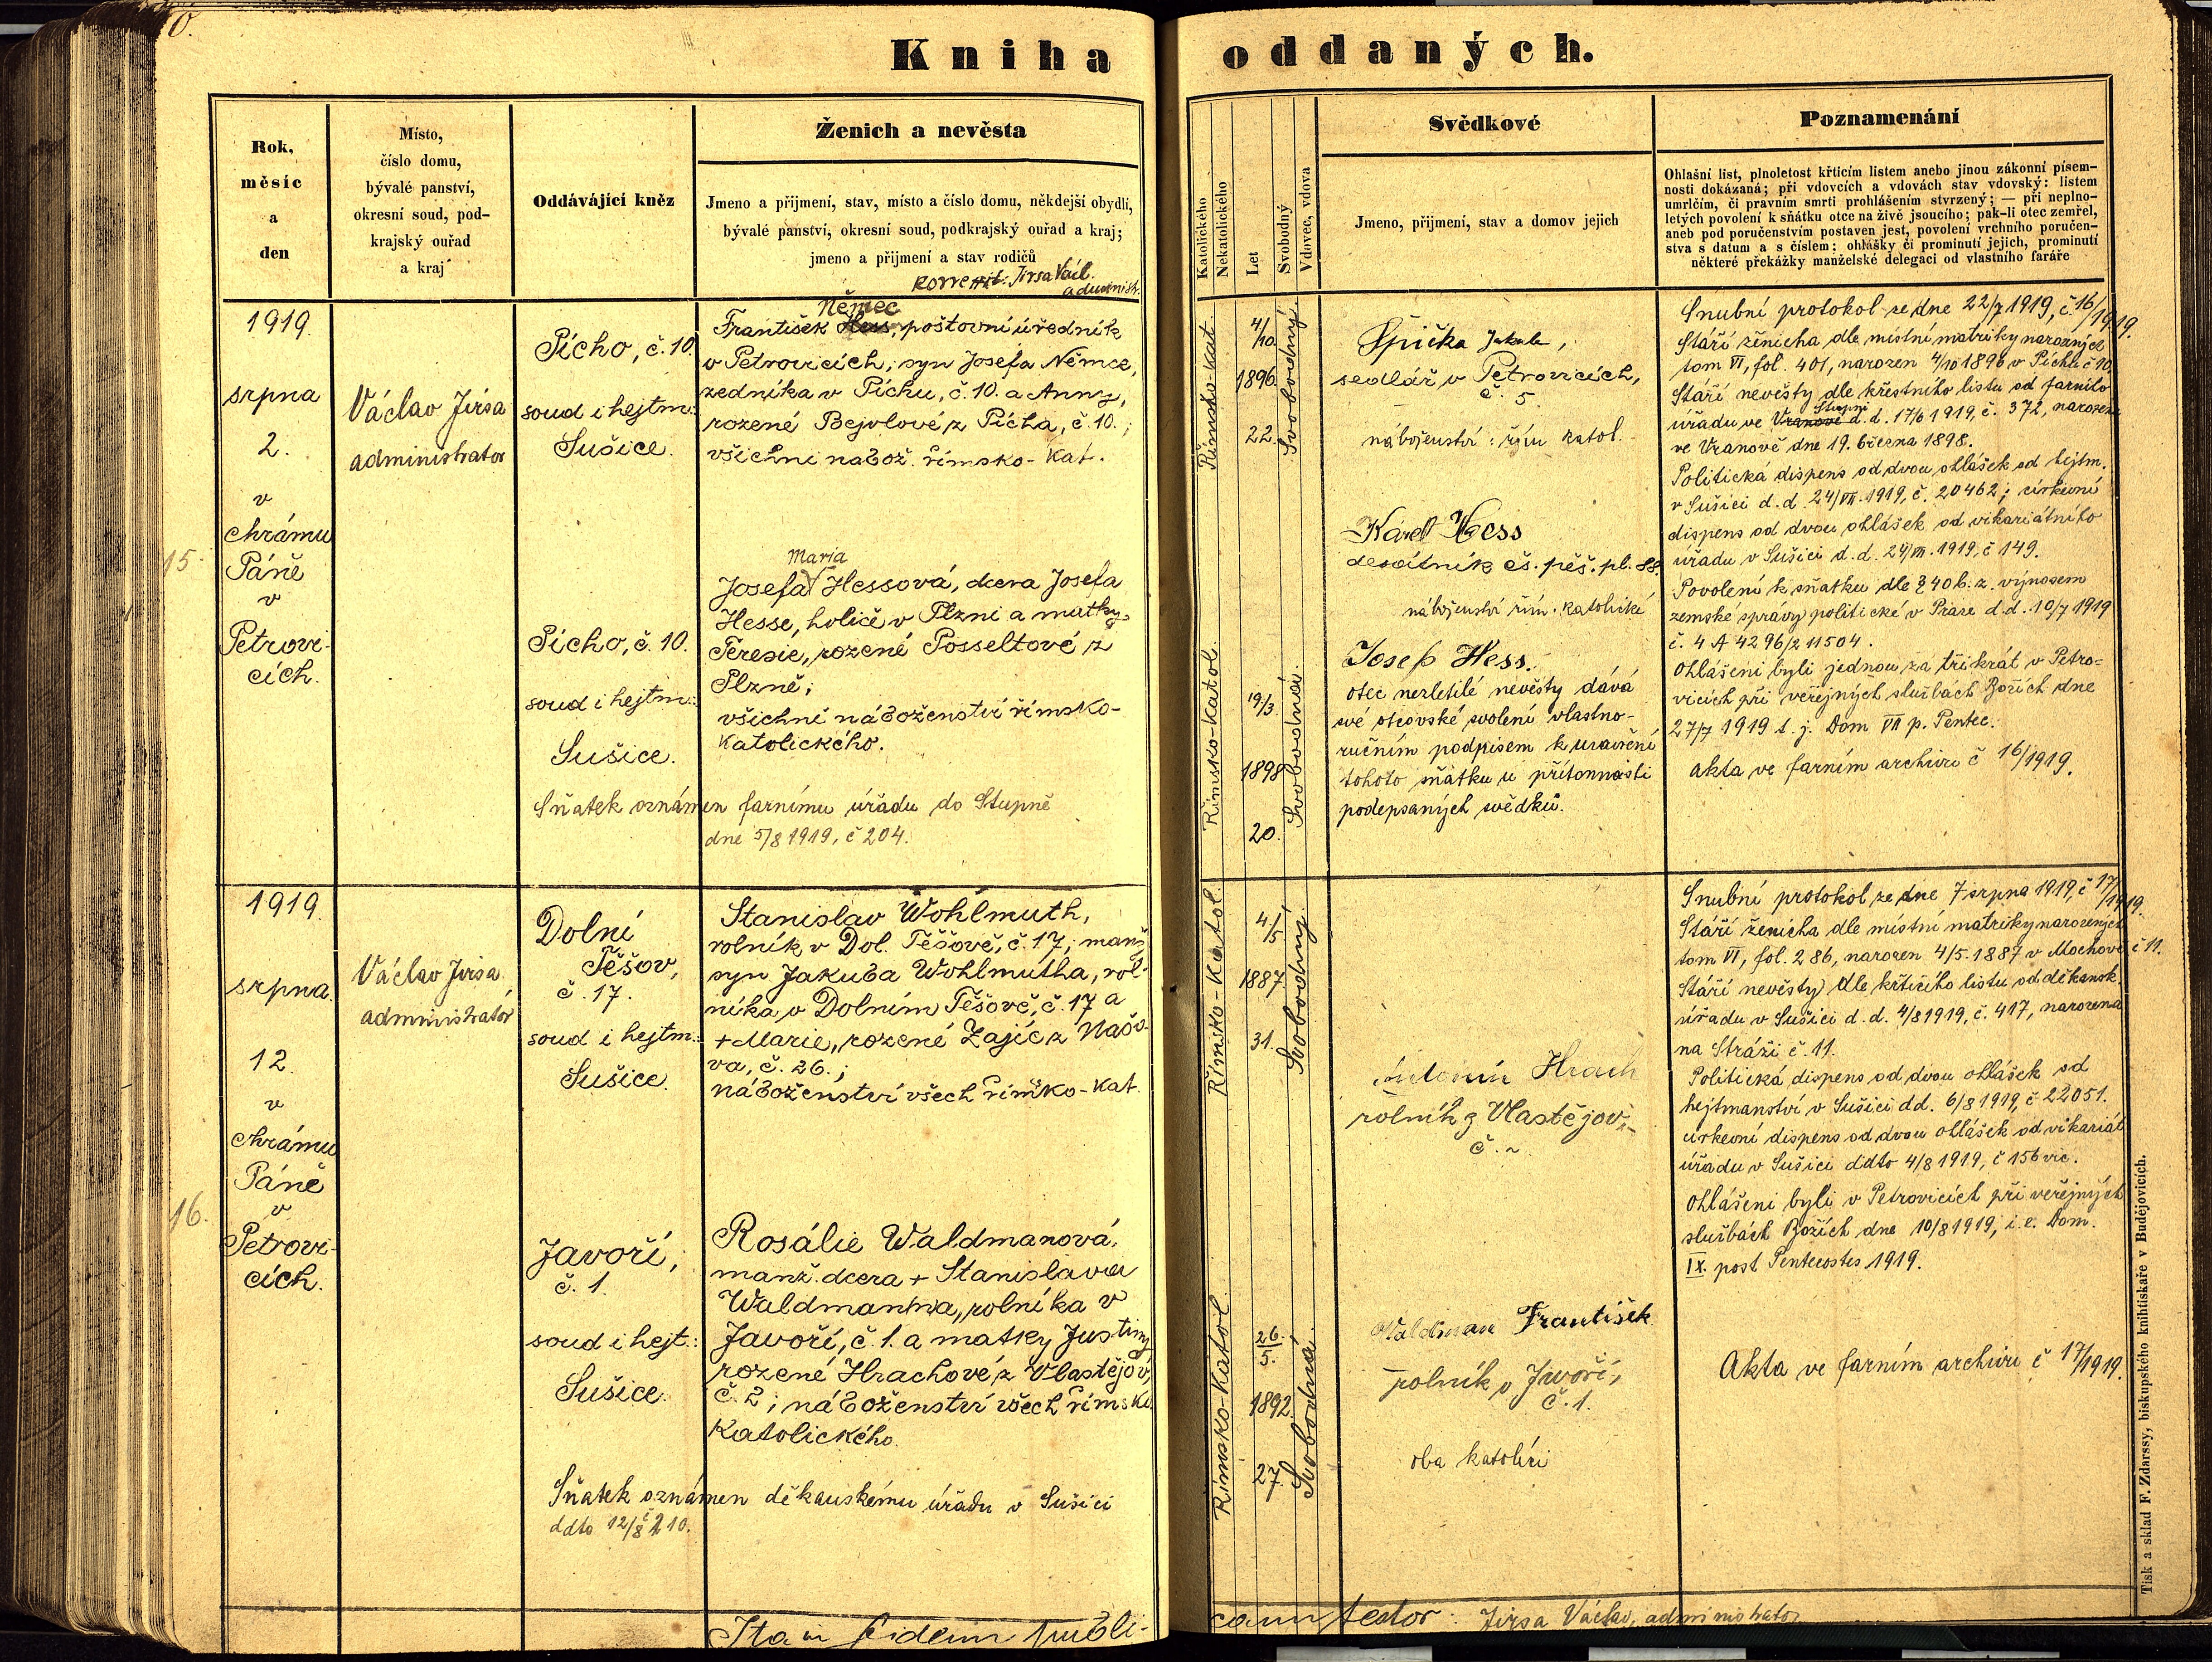 Kniha oddaných.
Rok,
měsíc
a
den
Místo,
číslo domu,
bývalé panství,
okresní soud, pod-
krajský ouřad
a kraj
Oddávající kněz
Ženich a nevěsta
Jmeno a přijmení, stav, místo a číslo domu, někdejší obydlí,
bývalé panství, okresní soud, podkrajský ouřad a kraj;
jmeno a přijmení a stav rodičů
Jirsa Václ.
administr.
Katolického
Nekatolického
Let
Svobodný
Vdovec, vdova
Svědkové
Jmeno, přijmení, stav a domov jejich
Poznamenání
Ohlašní list, plnoletost křticím listem anebo jinou zákonní písem-
nosti dokázaná; při vdovcích a vdovách stav vdovský: listem
umrlčím, či pravním smrti prohlášením stvrzený; — při neplno-
letých povolení k sňátku otce na živě jsoucího; pak-li otec zemřel,
aneb pod poručenstvím postaven jest, povolení vrchního poručen-
stva s datum a s číslem: ohlášky či prominutí jejich, prominutí
některé překážky manželské delegaci od vlastního faráře
15.
1919.
srpna
2.
v
chrámu
Páně
v
Petrovi-
cích.
Václav Jirsa
administrator
Pícho, č. 10.
soud i hejtm.:
Sušice.
Němec
František Hess, poštovní úředník
v Petrovicích, syn Josefa Němce,
zedníka v Píchu, č. 10. a Anny,
rozené Bejvlové z Pícha, č. 10.;
všichni nábož. římsko-kat.
Pícho, č. 10.
soud i hejtm.:
Sušice.
Maria
Josefa Hessová, dcera Josefa
Hesse, holiče v Plzni a matky
Teresie, rozené Posseltové z
Plzně;
všichni náboženství římsko-
katolického.
Sňatek oznámen farnímu úřadu do Stupně
dne 5/8 1919, č 204.
Římsko-kat.
4/10
1896
22.
Svobodný
Římsko-katol.
19/3
1898
20.
Svobodná.
Špička Jakub,
sedlář v Petrovicích,
č. 5
náboženství: řím katol.
Karel Hess
desátník čs. pěš. pl. 88.
náboženství řím. katolické
Josef Hess.
otec nezletilé nevěsty dává
své otcovské svolení vlastno-
ručním podpisem k uzavření
tohoto sňatku u přítomnosti
podepsaných svědků.
Snubní protokol ze dne 22/7 1919, č. 16/1919.
Stáří ženicha dle místní matriky narozených
tom VI, fol. 401, narozen 4/10 1896 v Píchu č 10.
Stáří nevěsty dle křestního listu od farního
Stupni
úřadu ve Vranově d. d. 17/6 1919, č. 372, narozena
ve Vranově dne 19. března 1898.
Politická dispens od dvou ohlášek od hejtm.
v Sušici d. d. 24/VII. 1919, č. 20462; církevní
dispens od dvou ohlášek od vikariátního
úřadu v Sušici d. d. 24/VII. 1919, č 149.
Povolení k sňatku dle § 40 b. z. výnosem
zemské správy politické v Praze d. d. 10/7 1919
č. 4 A 4296/2 11504.
Ohlášeni byli jednou za třikrát v Petro-
vicích při veřejných službách Božích dne
27/7 1919 t. j. Dom VII p. Pentec.
Akta ve farním archivu č 16/1919.
16.
1919.
srpna.
12.
v
chrámu
Páně
v
Petrovi-
cích.
Václav Jirsa
administrátor
Dolní
Těšov,
č. 17.
soud i hejtm.:
Sušice.
Stanislav Wohlmuth,
rolník v Dol. Těšově, č. 17, manž.
syn Jakuba Wohlmutha, rol-
níka v Dolním Těšově, č. 17 a
+ Marie, rozené Zajíc z Našo-
va, č. 26.;
náboženství všech římsko-kat.
Javoří,
č. 1.
soud i hejt.:
Sušice.
Rosálie Waldmanová,
manž. dcera + Stanislava
Waldmanna, rolníka v
Javoří, č. 1. a matky Justiny
rozené Hrachové z Vlastějov,
č. 2; náboženství všech římsko
katolického.
Sňatek oznámen děkanskému úřadu v Sušici
ddto 12/8 č 210.
Římsko-katol.
4/5
1887
31.
Svobodný
Římsko-katol.
26./5.
1892.
27.
Svobodná.
Antonín Hrach
rolník z Vlastějov,
č. 2
Waldman František
rolník v Javoří,
č. 1.
oba katolíci
Snubní protokol ze dne 7 srpna 1919, č 17/1919.
Stáří ženicha dle místní matriky narozených
tom VI, fol. 286, narozen 4/5. 1887 v Mochově č 11.
Stáří nevěsty dle křticího listu od děkansk.
úřadu v Sušici d. d. 4/8 1919, č. 417, narozena
na Stráži č. 11.
Politická dispens od dvou ohlášek od
hejtmanství v Sušici dd. 6/8 1919, č 22051.
církevní dispens od dvou ohlášek od vikariát
úřadu v Sušici ddto 4/8 1919, č 156 vic.
Ohlášeni byli v Petrovicích při veřejných
službách Božích dne 10/8 1919, i. e. Dom.
IX. post Pentecostes 1919.
Akta ve farním archivu č 17/1919.
Ita in fidem publi-
cam testor: Jirsa Václav, administrator
Tisk a sklad F. Zdarssy, biskupského knihtiskaře v Budějovicích.